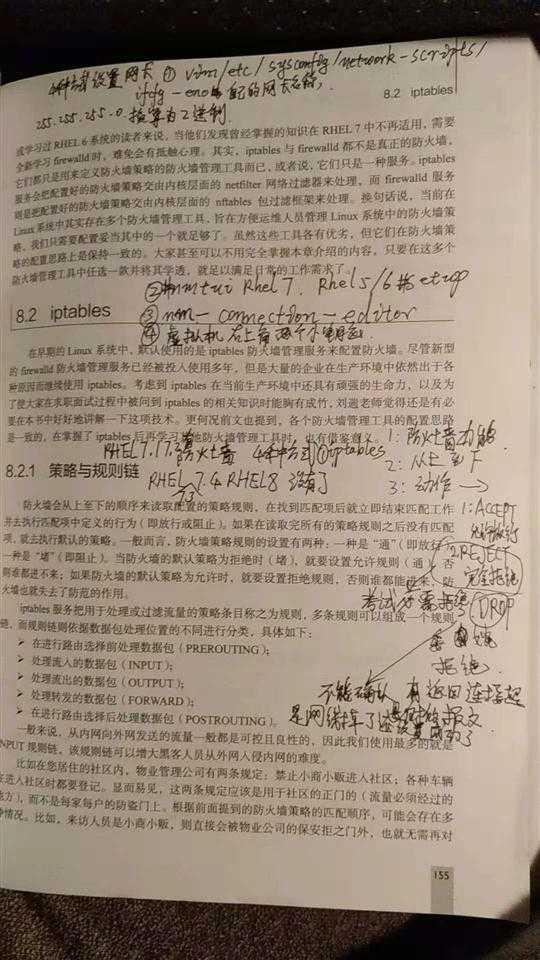 4种方式设置网卡 ① vim/etc/sysconfig/network-scripts/
ifcfg-eno 自己的网卡名称,
255.255.255.0 换算为2进制
8.2 iptables
或学习过 RHEL 6 系统的读者来说，当他们发现曾经掌握的知识在 RHEL 7 中不再适用，需要
全新学习 firewalld 时，难免会有抵触心理。其实，iptables 与 firewalld 都不是真正的防火墙，
它们都只是用来定义防火墙策略的防火墙管理工具而已，或者说，它们只是一种服务。iptables
服务会把配置好的防火墙策略交由内核层面的 netfilter 网络过滤器来处理，而 firewalld 服务
则是把配置好的防火墙策略交由内核层面的 nftables 包过滤框架来处理。换句话说，当前在
Linux 系统中其实存在多个防火墙管理工具，旨在方便运维人员管理 Linux 系统中的防火墙策
略，我们只需要配置妥当其中的一个就足够了。虽然这些工具各有优劣，但它们在防火墙策
略的配置思路上是保持一致的。大家甚至可以不用完全掌握本章介绍的内容，只要在这多个
防火墙管理工具中任选一款并将其学透，就足以满足日常的工作需求了。
② nmtui Rhel 7. Rhel 5/6 setup
8.2 iptables
③ nm-connection-editor
④ 虚拟机右上角 两个小电脑
在早期的 Linux 系统中，默认使用的是 iptables 防火墙管理服务来配置防火墙。尽管新型
的 firewalld 防火墙管理服务已经被投入使用多年，但是大量的企业在生产环境中依然出于各
种原因而继续使用 iptables。考虑到 iptables 在当前生产环境中还具有顽强的生命力，以及为
了使大家在求职面试过程中被问到 iptables 的相关知识时能胸有成竹，刘遄老师觉得还是有必
要在本书中好好地讲解一下这项技术。更何况前文也提到，各个防火墙管理工具的配置思路
是一致的，在掌握了 iptables 后再学习其他防火墙管理工具时，也有借鉴意义。
1: 防火墙功能
防火墙 4种方式 ① iptables
2: 从上至下
8.2.1 策略与规则链
RHEL 7.4 RHEL8 没有了
3: 动作 →
7.3
防火墙会从上至下的顺序来读取配置的策略规则，在找到匹配项后就立即结束匹配工作
1: ACCEPT
并去执行匹配项中定义的行为（即放行或阻止）。如果在读取完所有的策略规则之后没有匹配
允许放行
项，就去执行默认的策略。一般而言，防火墙策略规则的设置有两种：一种是“通”（即放行），
2. REJECT
一种是“堵”（即阻止）。当防火墙的默认策略为拒绝时（堵），就要设置允许规则（通），否
完全拒绝
则谁都进不来；如果防火墙的默认策略为允许时，就要设置拒绝规则，否则谁都能进来，防
火墙也就失去了防范的作用。
DROP
iptables 服务把用于处理或过滤流量的策略条目称之为规则，多条规则可以组成一个规则
链，而规则链则依据数据包处理位置的不同进行分类，具体如下：
➢ 在进行路由选择前处理数据包（PREROUTING）；
拒绝
➢ 处理流入的数据包（INPUT）；
➢ 处理流出的数据包（OUTPUT）；
不能确认
➢ 处理转发的数据包（FORWARD）；
➢ 在进行路由选择后处理数据包（POSTROUTING）。
一般来说，从内网向外网发送的流量一般都是可控且良性的，因此我们使用最多的就是
INPUT 规则链，该规则链可以增大黑客人员从外网入侵内网的难度。
比如在您居住的社区内，物业管理公司有两条规定：禁止小商小贩进入社区；各种车辆
在进入社区时都要登记。显而易见，这两条规定应该是用于社区的正门的（流量必须经过的
地方），而不是每家每户的防盗门上。根据前面提到的防火墙策略的匹配顺序，可能会存在多
种情况。比如，来访人员是小商小贩，则直接会被物业公司的保安拒之门外，也就无需再对
155